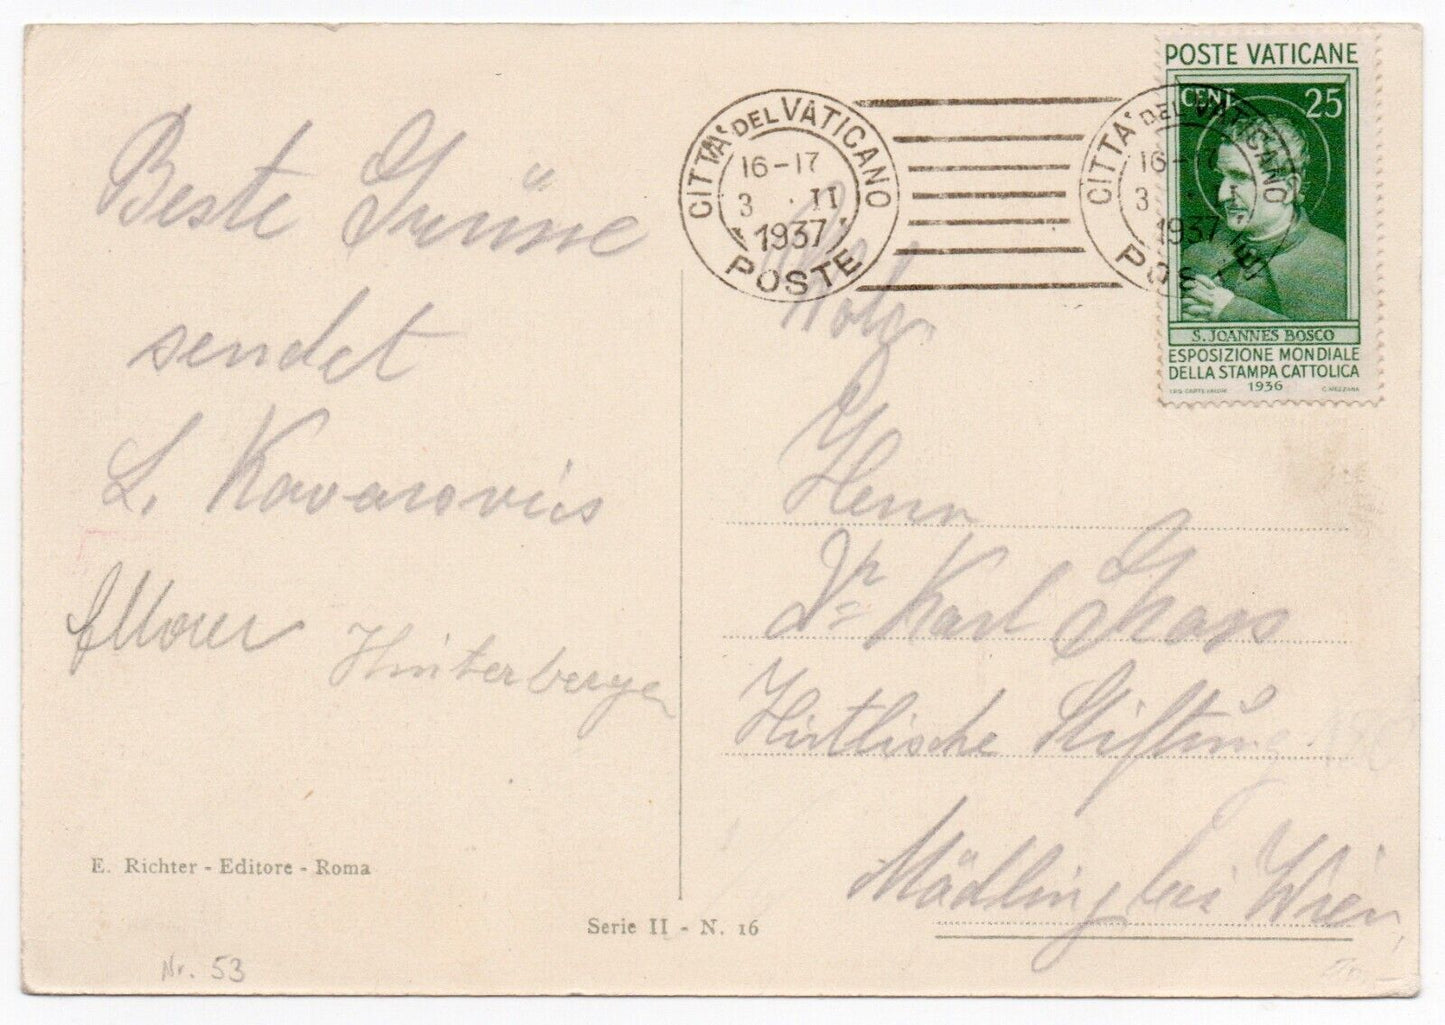 POSTE VATICANE
CENT 25
S. JOANNES BOSCO
ESPOSIZIONE MONDIALE
DELLA STAMPA CATTOLICA
1936
CITTA' DEL VATICANO
16-17
3 . II
1937
POSTE
CITTA' DEL VATICANO
16-17
3 . II
1937
POSTE
Beste Grüsse
sendet
L.
Hinterberger
Herrn
Dr Karl
Hirtlische Stiftung
Mödling bei Wien
E. Richter - Editore - Roma
Serie II - N. 16
Nr. 53